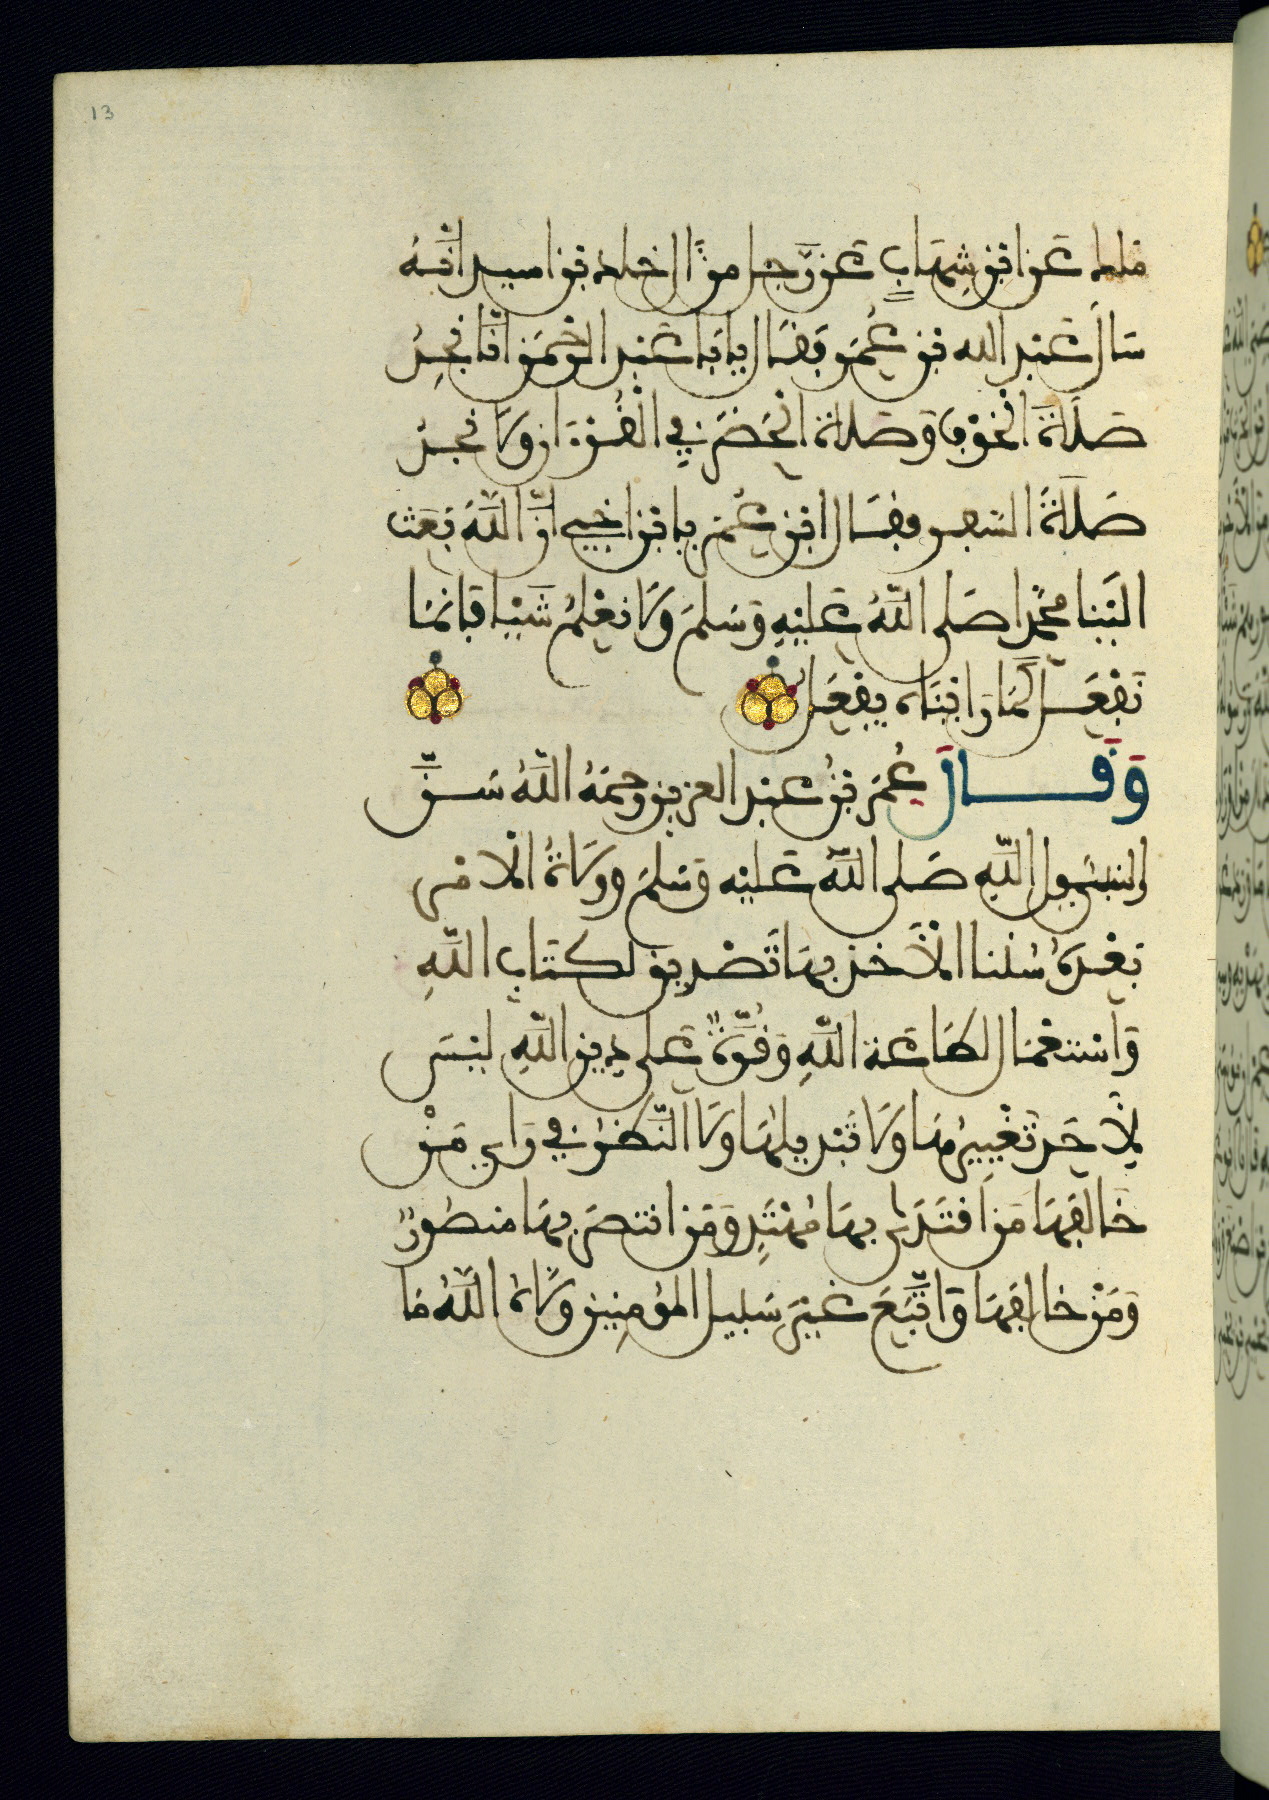 13
ملك عن ابن شِهَابٍ عن رَّجل منَ ال خلد بن اسيد انَّهُ
سَال عَبد الله بن عُمَر فقَال يابَا عَبد الرَّحمَن انَّا نجِدُ
صَلَاةَ الخَوْف وَصَلاة الحَضَر فِي الْقُرْءَان ولَا نجدُ
صَلَاةَ السَّفر فقَال ابن عُمر يا ابن اخِي انَّ اللَّهَ بَعَث
الَيْنا محَمَّدا صَلى اللَّهُ عَليْهِ وَسَلمَ ولَا نعْلمُ شَيْا فَانمَا
نَفْعَل كَمَا رَايْنَاه يفْعَل
وَقَالَ عُمَر بنُ عَبد العزيز رحمَهُ اللَّهُ سَنَّ
رسُول اللَّهِ صَلى اللَّهُ عَليْه وَسَلمَ وولَاةُ الْامْر
بَعْدَهُ سُننا الْاَخذ بهَا تَصْديق لكتَاب اللَّهِ
وَاسْتعْمَال لطَاعَة اللَّهِ وَقُوَّةٌ عَلى دين اللَّهِ ليْسَ
لِاَحَد تَغْييرُهَا ولَا تَبْديلهَا ولَا النَّظَرُ في رَاي مَنْ
خَالفهَا مَن اقتَدَى بهَا مُهْتَدٍ وَمَن انتصَر بهَا منصُورٌ
وَمَنْ خالفهَا وَاتَّبَعَ غَيْرَ سَبيل المُؤمِنِين ولَّاهُ اللَّهُ مَا